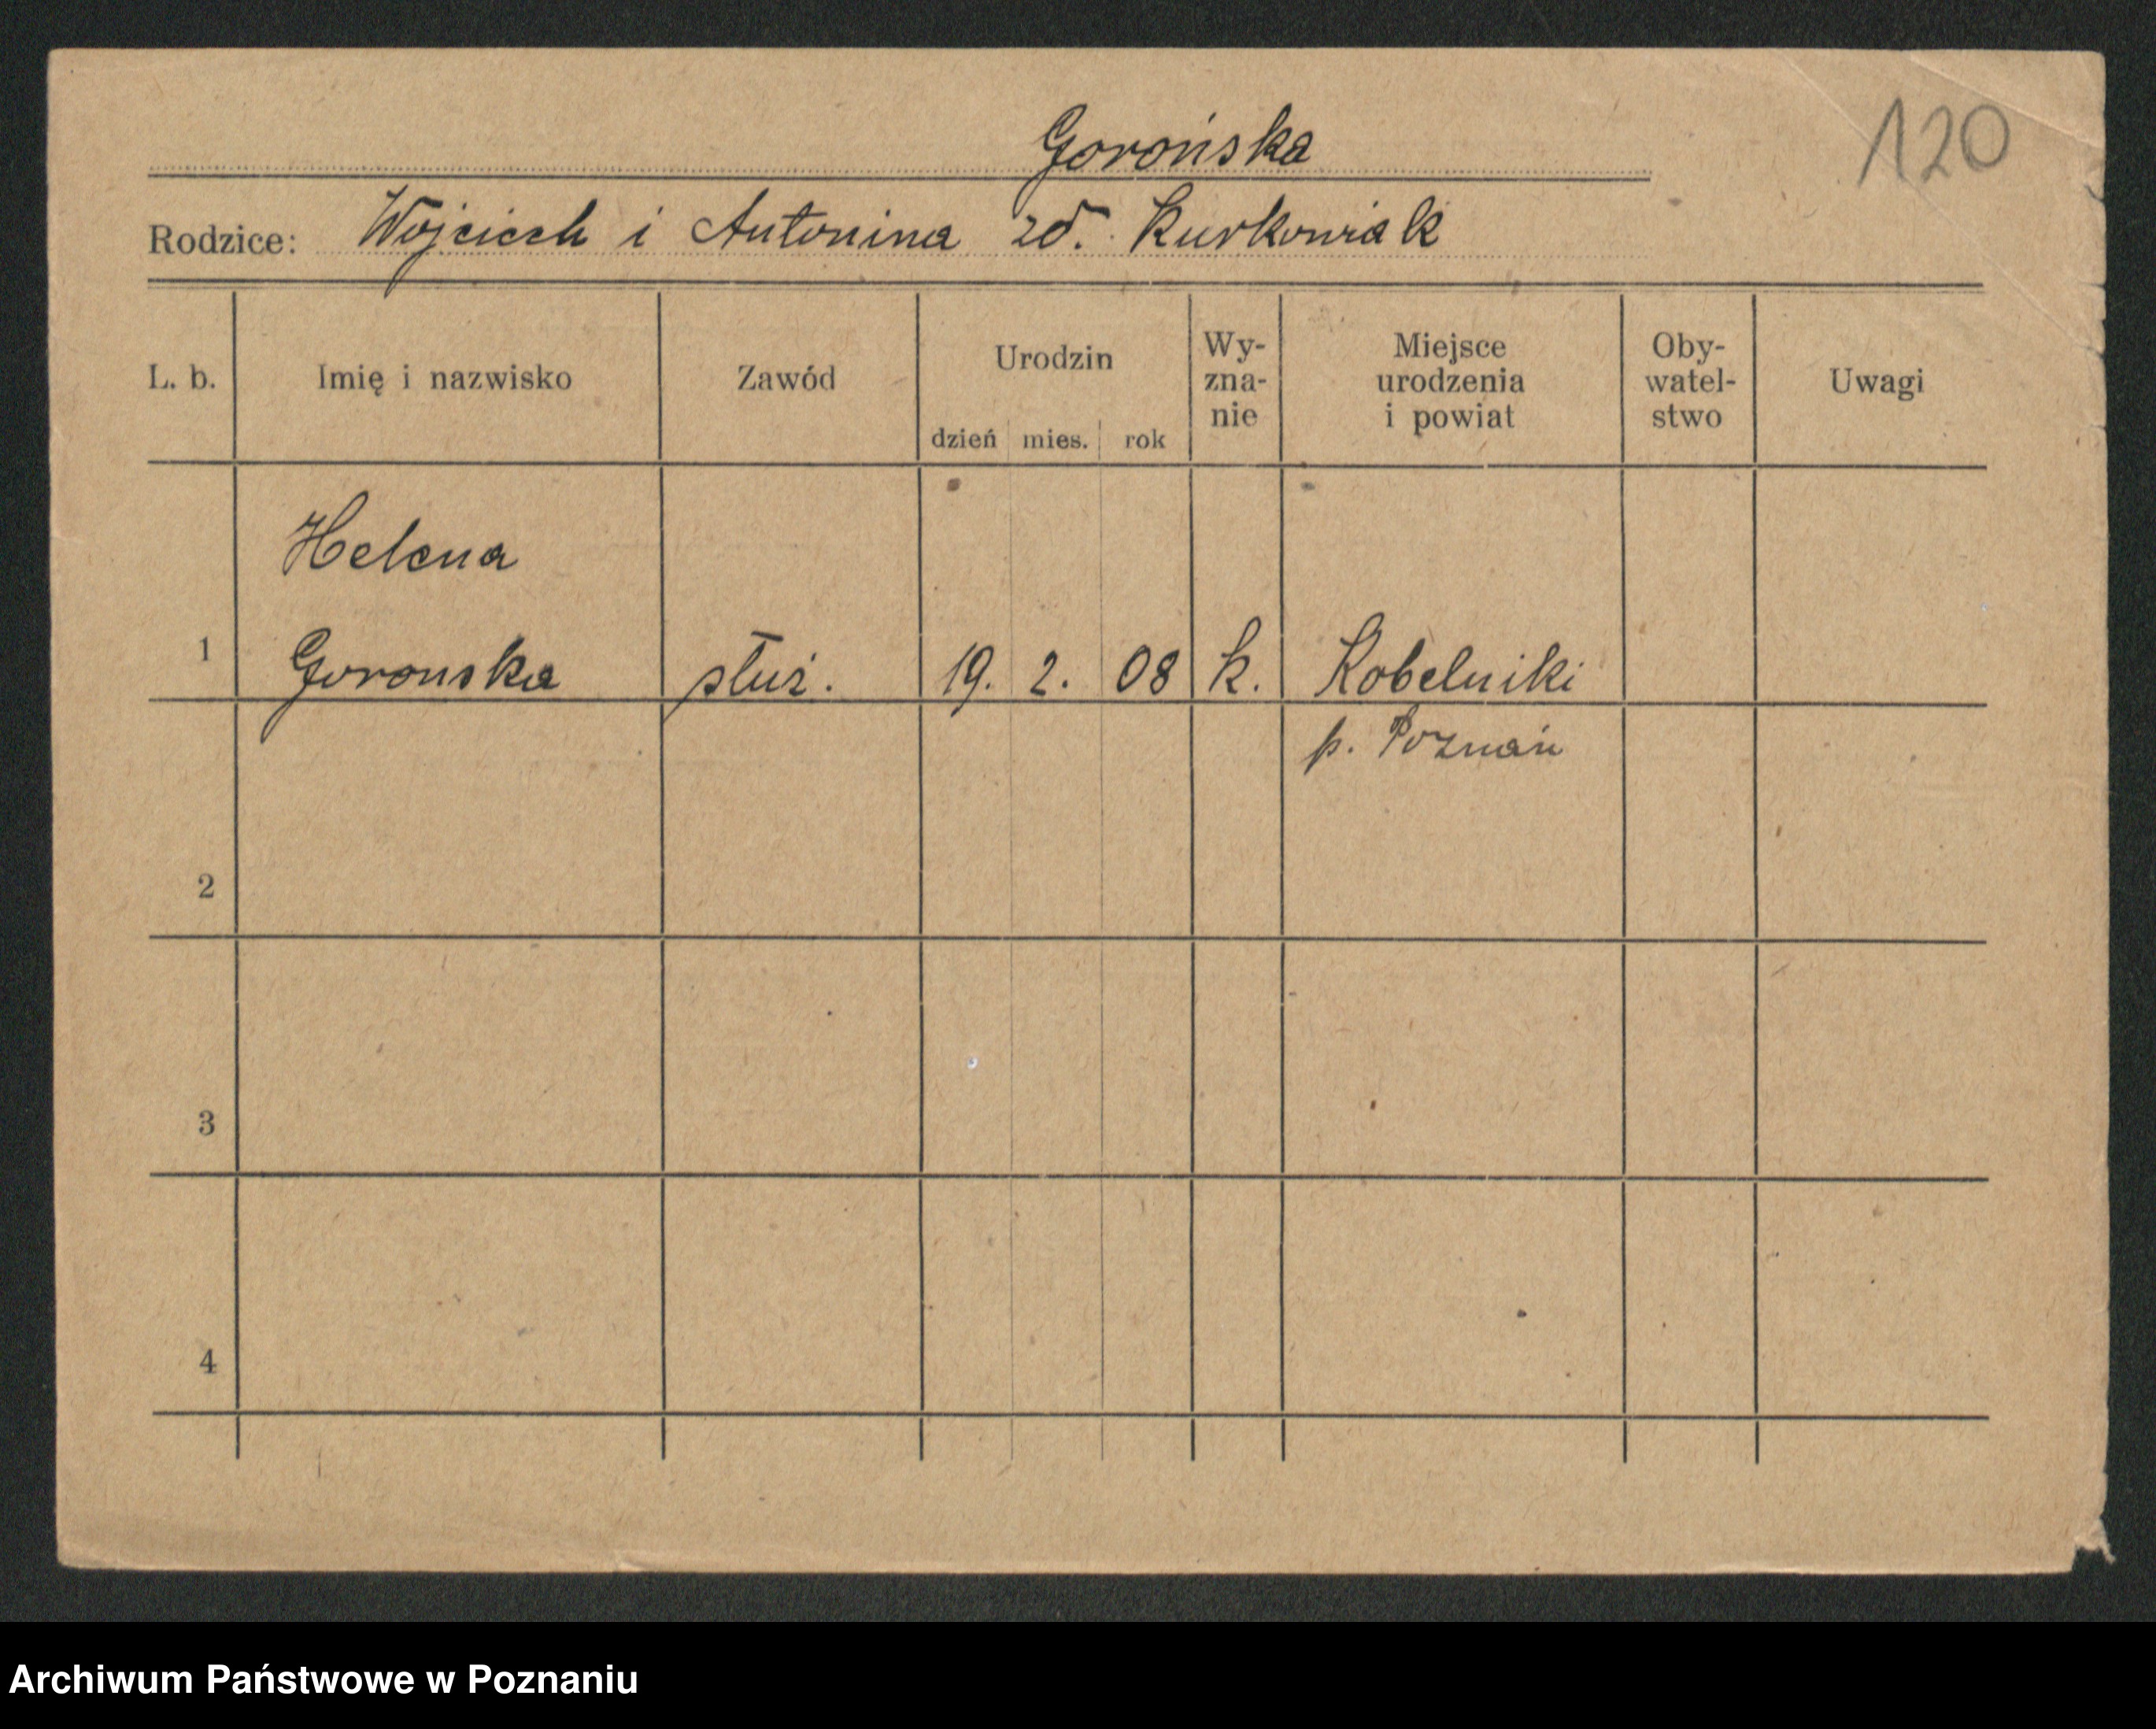 Gorońska
120
Rodzice: Wojciech i Antonina zd. Kurkowiak
L. b.
Imię i nazwisko
Zawód
Urodzin
dzień mies. rok
Wy-
zna-
nie
Miejsce
urodzenia
i powiat
Oby-
watel-
stwo
Uwagi
Helena
1 Goronska służ. 19. 2. 08 k. Kobelniki
p. Poznań
2
3
4
Archiwum Państwowe w Poznaniu